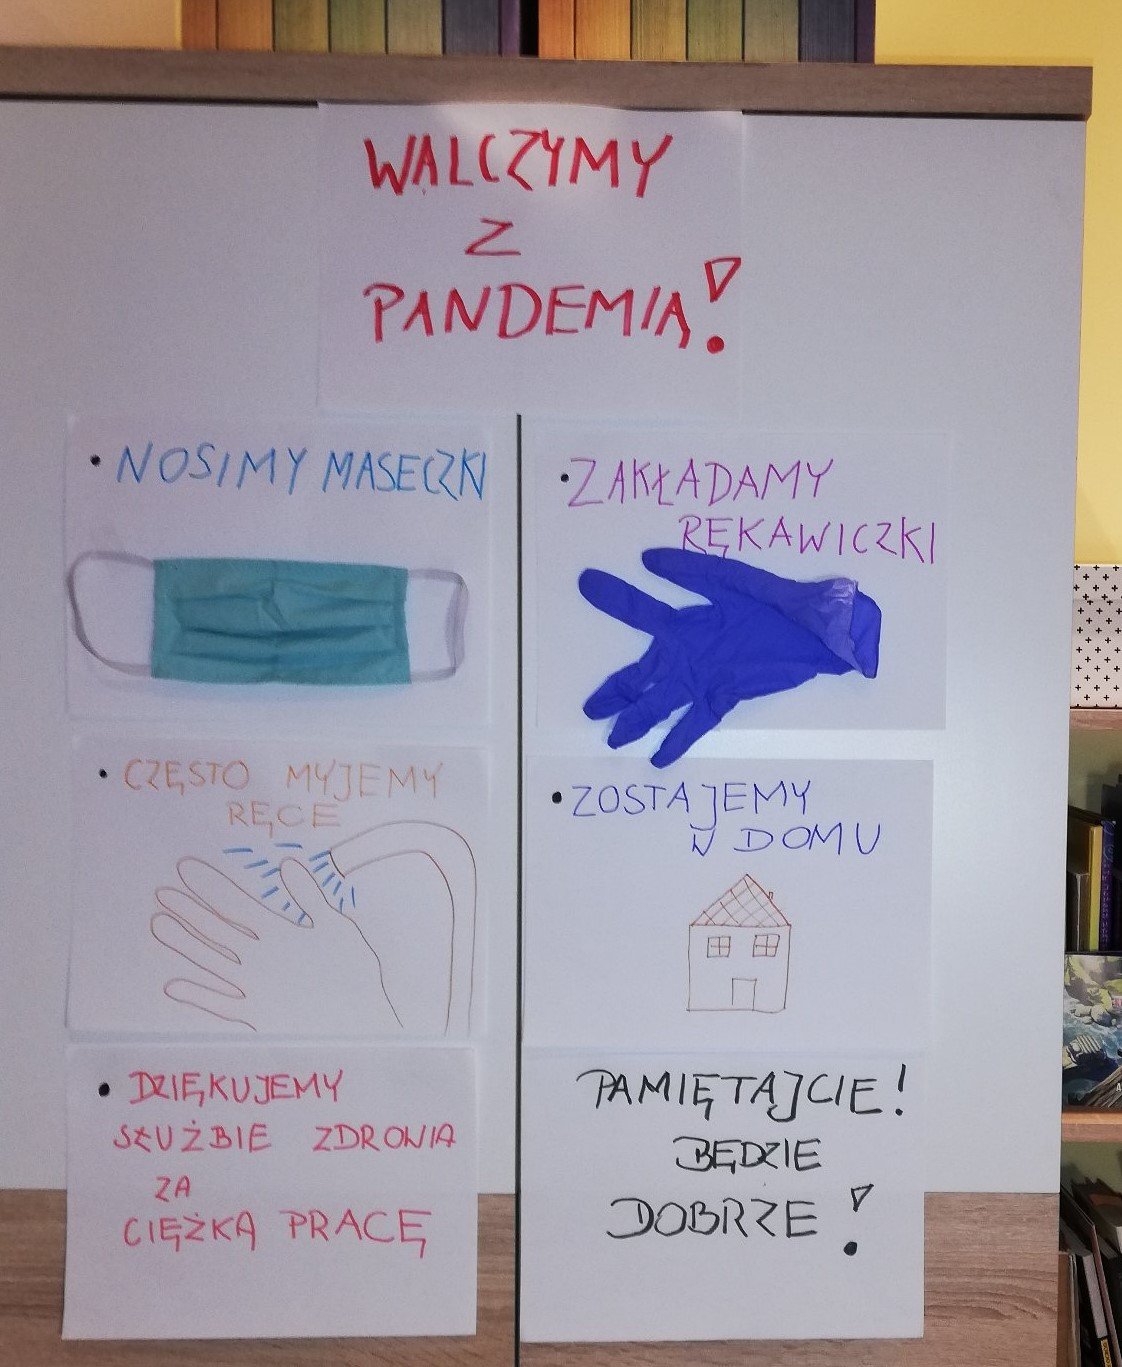 WALCZYMY
Z
PANDEMIĄ!
• NOSIMY MASECZKI
• ZAKŁADAMY
RĘKAWICZKI
• CZĘSTO MYJEMY
RĘCE
• ZOSTAJEMY
W DOMU
• DZIĘKUJEMY
SŁUŻBIE ZDROWIA
ZA
CIĘŻKĄ PRACĘ
PAMIĘTAJCIE!
BĘDZIE
DOBRZE!